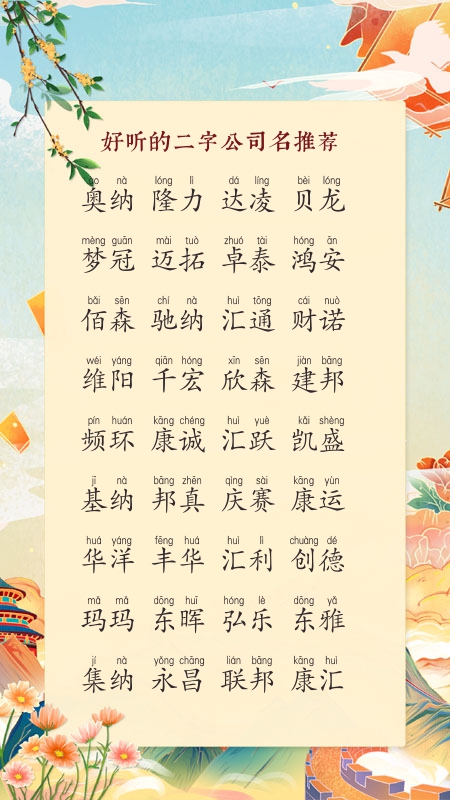 好听的二字公司名推荐
ào nà lóng lì dá líng bèi lóng
奥纳 隆力 达凌 贝龙
mèng guān mài tuò zhuó tài hóng ān
梦冠 迈拓 卓泰 鸿安
bǎi sēn chí nà huì tōng cái nuò
佰森 驰纳 汇通 财诺
wéi yáng qiān hóng xīn sēn jiàn bāng
维阳 千宏 欣森 建邦
pín huán kāng chéng huì yuè kǎi shèng
频环 康诚 汇跃 凯盛
jī nà bāng zhēn qìng sài kāng yùn
基纳 邦真 庆赛 康运
huá yáng fēng huá huì lì chuàng dé
华洋 丰华 汇利 创德
mǎ mǎ dōng huī hóng lè dōng yǎ
玛玛 东晖 弘乐 东雅
jí nà yǒng chāng lián bāng kāng huì
集纳 永昌 联邦 康汇